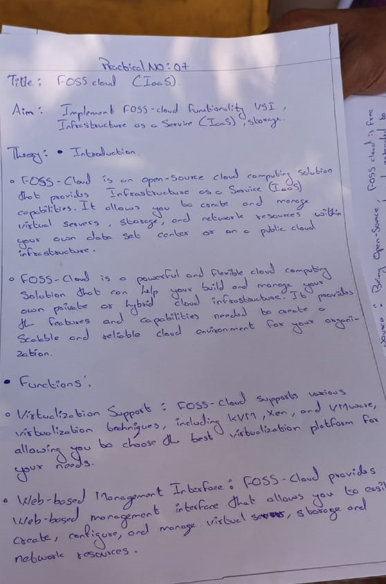 Practical NO: 07
Title: FOSS cloud (IaaS)
Aim: Implement FOSS-cloud functionality VSI,
Infrastructure as a Service (IaaS), storage.
Theory: • Introduction
• FOSS-Cloud is an open-source cloud computing solution
that provides Infrastructure as a Service (IaaS)
capabilities. It allows you to create and manage
virtual servers, storage, and network resources within
your own data set center or on a public cloud
infrastructure.
• FOSS-Cloud is a powerful and flexible cloud computing
solution that can help your build and manage your
own private or hybrid cloud infrastructure. It provides
the features and capabilities needed to create a
Scalable and reliable cloud environment for your organi-
zation.
• Functions:
• Virtualization Support: FOSS-Cloud supports various
virtualization techniques, including KVM, Xen, and VMware,
allowing you to choose the best virtualization platform for
your needs.
• Web-based Management Interface: FOSS-Cloud provides
Web-based management interface that allows you to easi
create, configure, and manage virtual, storage and
network resources.
Being Open-Source, FOSS cloud is free